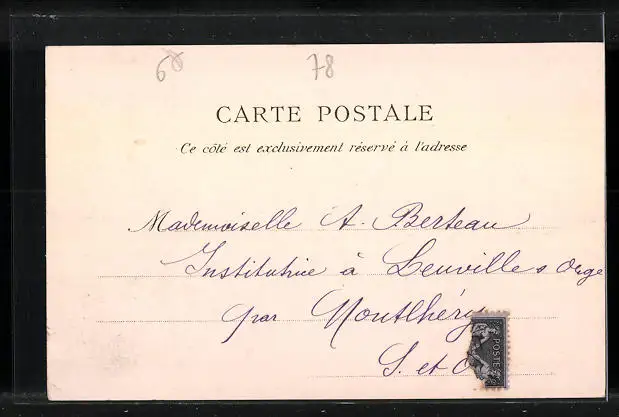 60 78
CARTE POSTALE
Ce côté est exclusivement réservé à l'adresse
Mademoiselle A. Berteau
Institutrice à Leuville s Orge
par Montlhéry
S. et O
POSTE